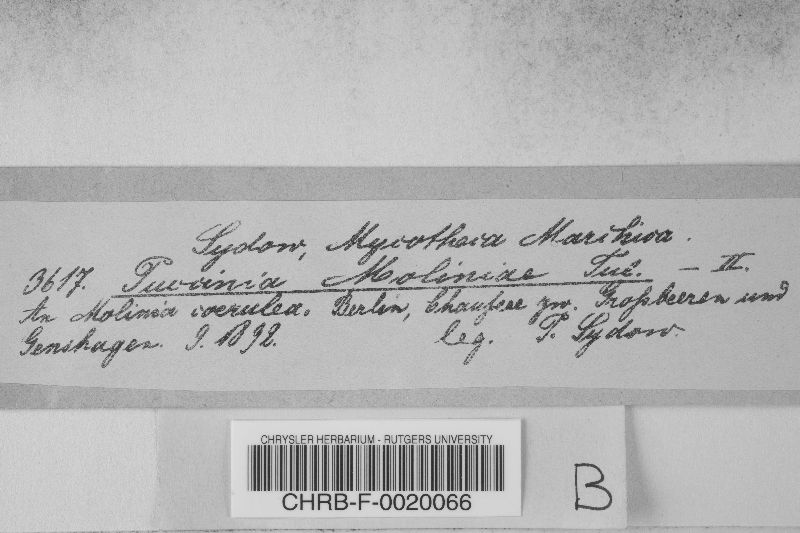 Sydow, Mycotheca Marchica.
3617. Puccinia Moliniae Tul. — II.
An Molinia coerulea. Berlin, Chaussee zw. Großbeeren und
Genshagen. 9. 1892. leg. P. Sydow.
CHRYSLER HERBARIUM - RUTGERS UNIVERSITY
CHRB-F-0020066
B